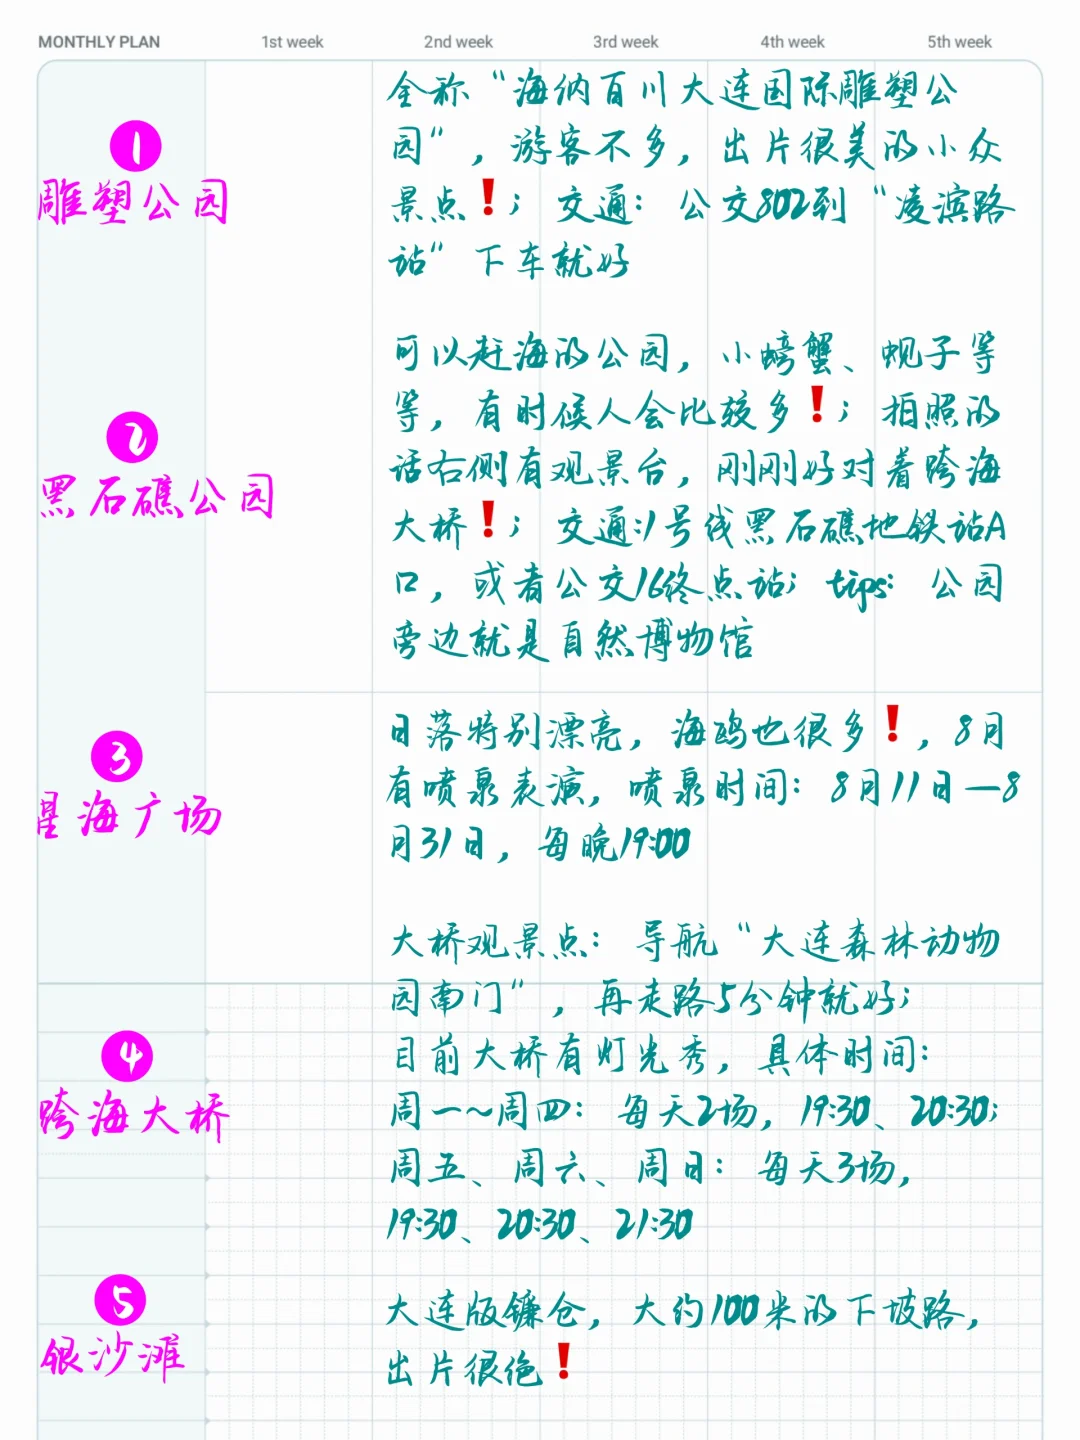 MONTHLY PLAN 1st week 2nd week 3rd week 4th week 5th week
1
雕塑公园
全称“海纳百川大连国际雕塑公
园”，游客不多，出片很美的小众
景点❗；交通：公交802到“凌滨路
站”下车就好
2
黑石礁公园
可以赶海的公园，小螃蟹、蚬子等
等，有时候人会比较多❗；拍照的
话右侧有观景台，刚刚好对着跨海
大桥❗；交通:1号线黑石礁地铁站A
口，或者公交16终点站；tips：公园
旁边就是自然博物馆
3
星海广场
日落特别漂亮，海鸥也很多❗，8月
有喷泉表演，喷泉时间：8月11日—8
月31日，每晚19:00
4
跨海大桥
大桥观景点：导航“大连森林动物
园南门”，再走路5分钟就好；
目前大桥有灯光秀，具体时间：
周一~周四：每天2场，19:30、20:30；
周五、周六、周日：每天3场，
19:30、20:30、21:30
5
银沙滩
大连版镰仓，大约100米的下坡路，
出片很绝❗